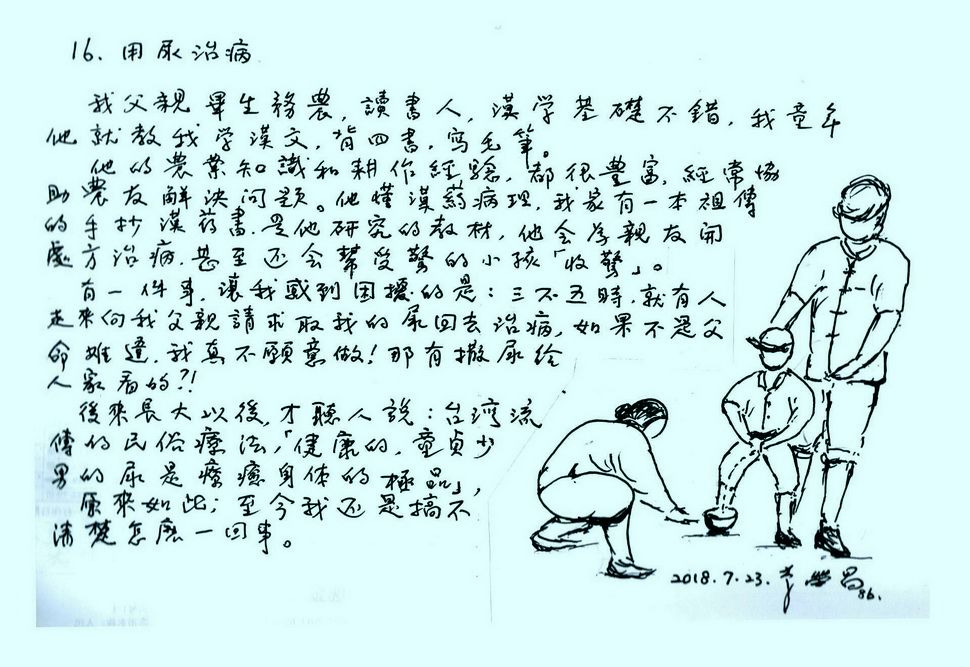 16. 用尿治病
我父親畢生務農，讀書人，漢学基礎不錯，我童年
他就教我学漢文，背四書，寫毛筆。
他的農業知識和耕作經驗，都很豐富，經常協
助農友解決问題。他懂漢药病理，我家有一本祖傳
的手抄漢药書，是他研究的教材，他会為親友開
處方治病，甚至还会幫受驚的小孩「收驚」。
有一件事，讓我感到困擾的是：三不五時，就有人
走來向我父親請求取我的尿回去治病，如果不是父
命难違，我真不願意做！那有撒尿给
人家看的？！
後來長大以後，才聽人說：台湾流
傳的民俗療法，「健康的，童貞少
男的尿是療癒身体的極品」，
原來如此；至今我还是搞不
清楚怎麼一回事。
2018.7.23. 86.